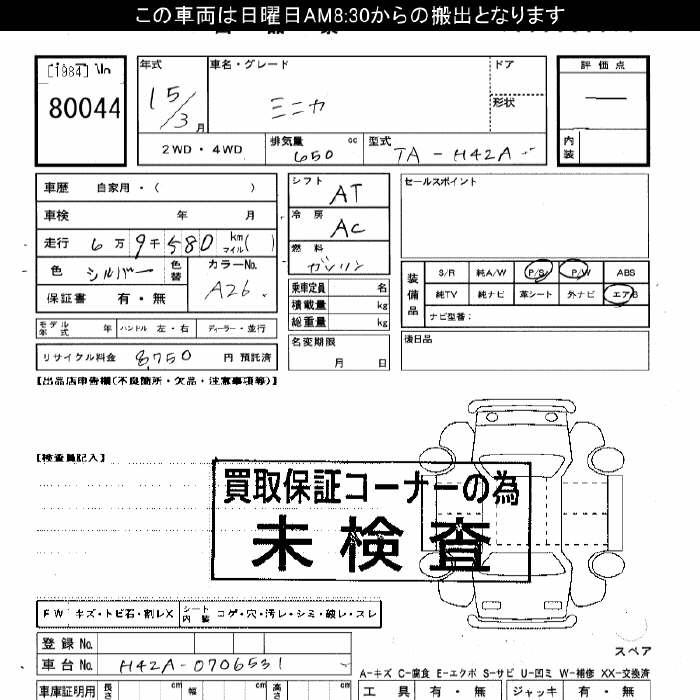 この車両は日曜日AM8:30からの搬出となります
[1984] \ln
80044
年式 15/3 月
車名・グレード ミニカ
ドア
形状
評価点 —
内装
2WD・4WD
排気量 650 cc
型式 TA-H42A-
車歴 自家用・( )
車検 年 月
走行 6万9千580 km マイル( )
色 シルバー 色替
カラーNo. A26
保証書 有・無
モデル年式 年 ハンドル 左・右 ディーラー・並行
リサイクル料金 8,750 円 預託済
シフト AT
冷房 AC
燃料 ガソリン
乗車定員 名
積載量 kg
総重量 kg
名変期限 月 日
セールスポイント
装備品
S/R 純A/W P/S P/W ABS
純TV 純ナビ 革シート 外ナビ エアB
ナビ型番:
後日品
【出品店申告欄(不良箇所・欠品・注意事項等)】
【検査員記入】
買取保証コーナーの為
未検査
FW キズ・トビ石・割レX シート内装 コゲ・穴・汚レ・シミ・破レ・スレ
登録No.
車台No. H42A-0706531
スペア
A-キズ C-腐食 E-エクボ S-サビ U-凹ミ W-補修 XX-交換済
車庫証明用 長さ cm 幅 cm 高さ cm
工具 有・無 ジャッキ 有・無